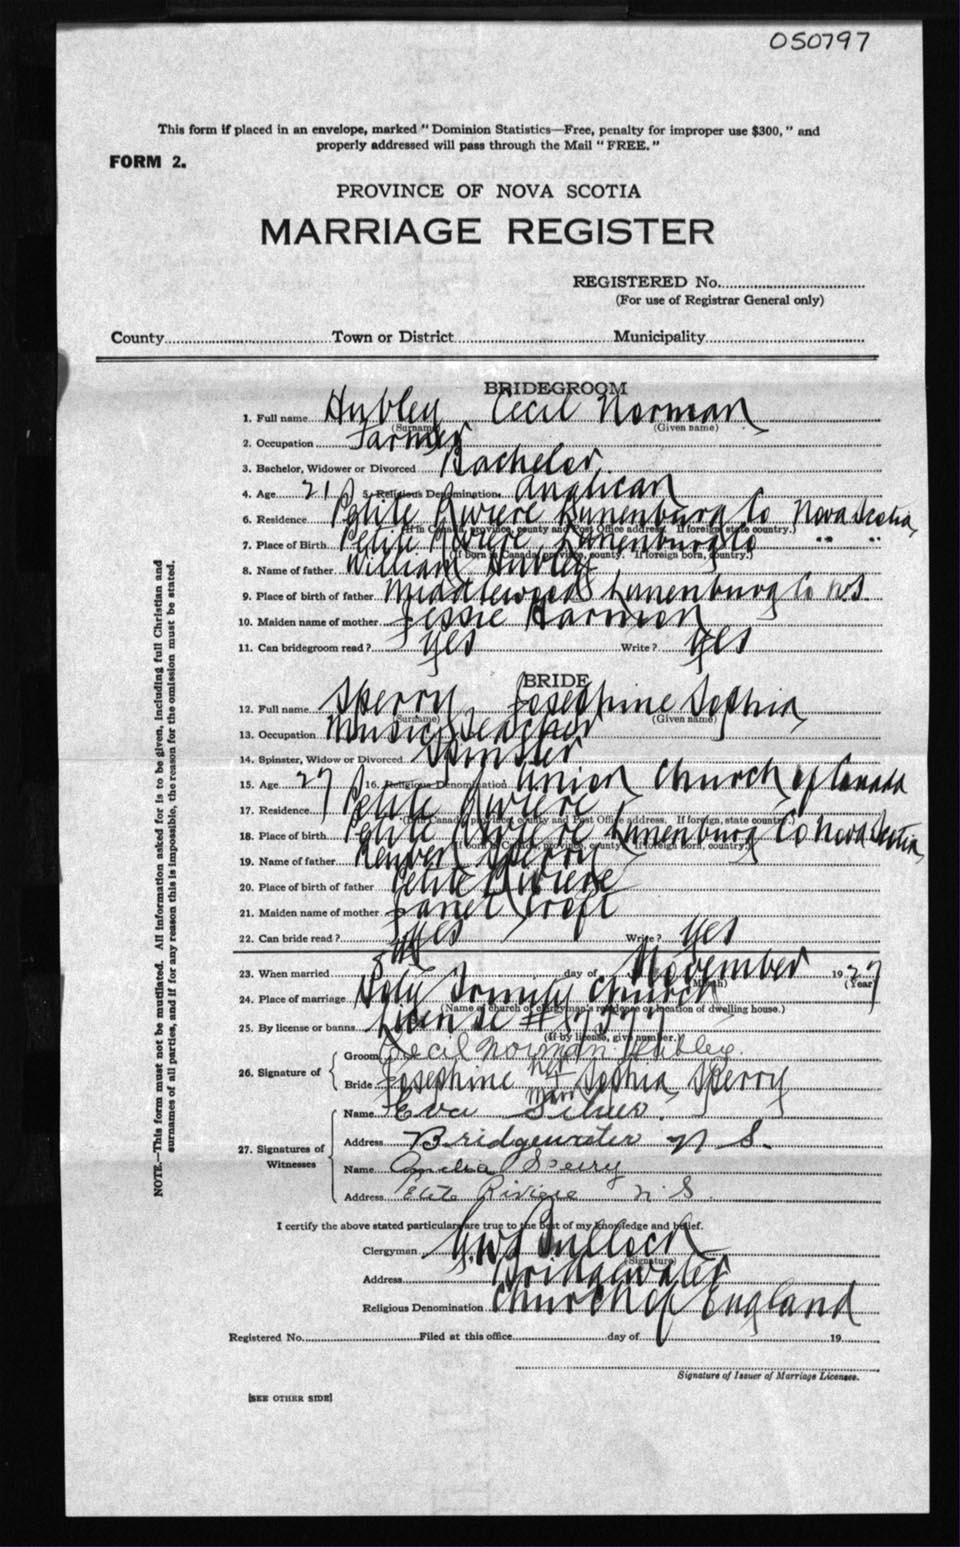 050797
This form if placed in an envelope, marked "Dominion Statistics—Free, penalty for improper use $300," and
properly addressed will pass through the Mail "FREE."
FORM 2.
PROVINCE OF NOVA SCOTIA
MARRIAGE REGISTER
REGISTERED No.
(For use of Registrar General only)
County Town or District Municipality
BRIDEGROOM
1. Full name Hubley Cecil Norman
(Surname) (Given name)
2. Occupation Farmer
3. Bachelor, Widower or Divorced Bachelor
4. Age 21 5. Religious Denomination Anglican
6. Residence Petite Riviere Lunenburg Co Nova Scotia
(If in Canada, province, county and Post Office address. If foreign, state country.)
7. Place of Birth Petite Riviere Lunenburg Co " "
(If born in Canada, province, county. If foreign born, country.)
8. Name of father William Hubley
9. Place of birth of father Middlewood Lunenburg Co N.S.
10. Maiden name of mother Jessie Harmon
11. Can bridegroom read? yes Write? yes
BRIDE
12. Full name Sperry Josephine Sophia
(Surname) (Given name)
13. Occupation Music Teacher
14. Spinster, Widow or Divorced Spinster
15. Age 27 16. Religious Denomination Union Church of Canada
17. Residence Petite Riviere
(If in Canada, province, county and Post Office address. If foreign, state country.)
18. Place of birth Petite Riviere Lunenburg Co Nova Scotia
(If born in Canada, province, county. If foreign born, country.)
19. Name of father Reuben Sperry
20. Place of birth of father Petite Riviere
21. Maiden name of mother Janet Croft
22. Can bride read? Yes Write? yes
23. When married day of November 1927
(Month) (Year)
24. Place of marriage Holy Trinity Church
(Name of church or clergyman's residence or location of dwelling house.)
25. By license or banns License #
(If by license, give number.)
26. Signature of
Groom Cecil Norman Hubley.
Bride Josephine Sophia Sperry
27. Signatures of
Witnesses
Name Eva
Address Bridgewater N S.
Name Amelia Sperry
Address Petite Riviere N. S.
I certify the above stated particulars are true to the best of my knowledge and belief.
Clergyman Bullock
(Signature)
Address Bridgewater
Religious Denomination Church of England
Registered No. Filed at this office day of 19
Signature of Issuer of Marriage Licenses.
[SEE OTHER SIDE]
NOTE.—This form must not be mutilated. All information asked for is to be given, including full Christian and
surnames of all parties, and if for any reason this is impossible, the reason for the omission must be stated.